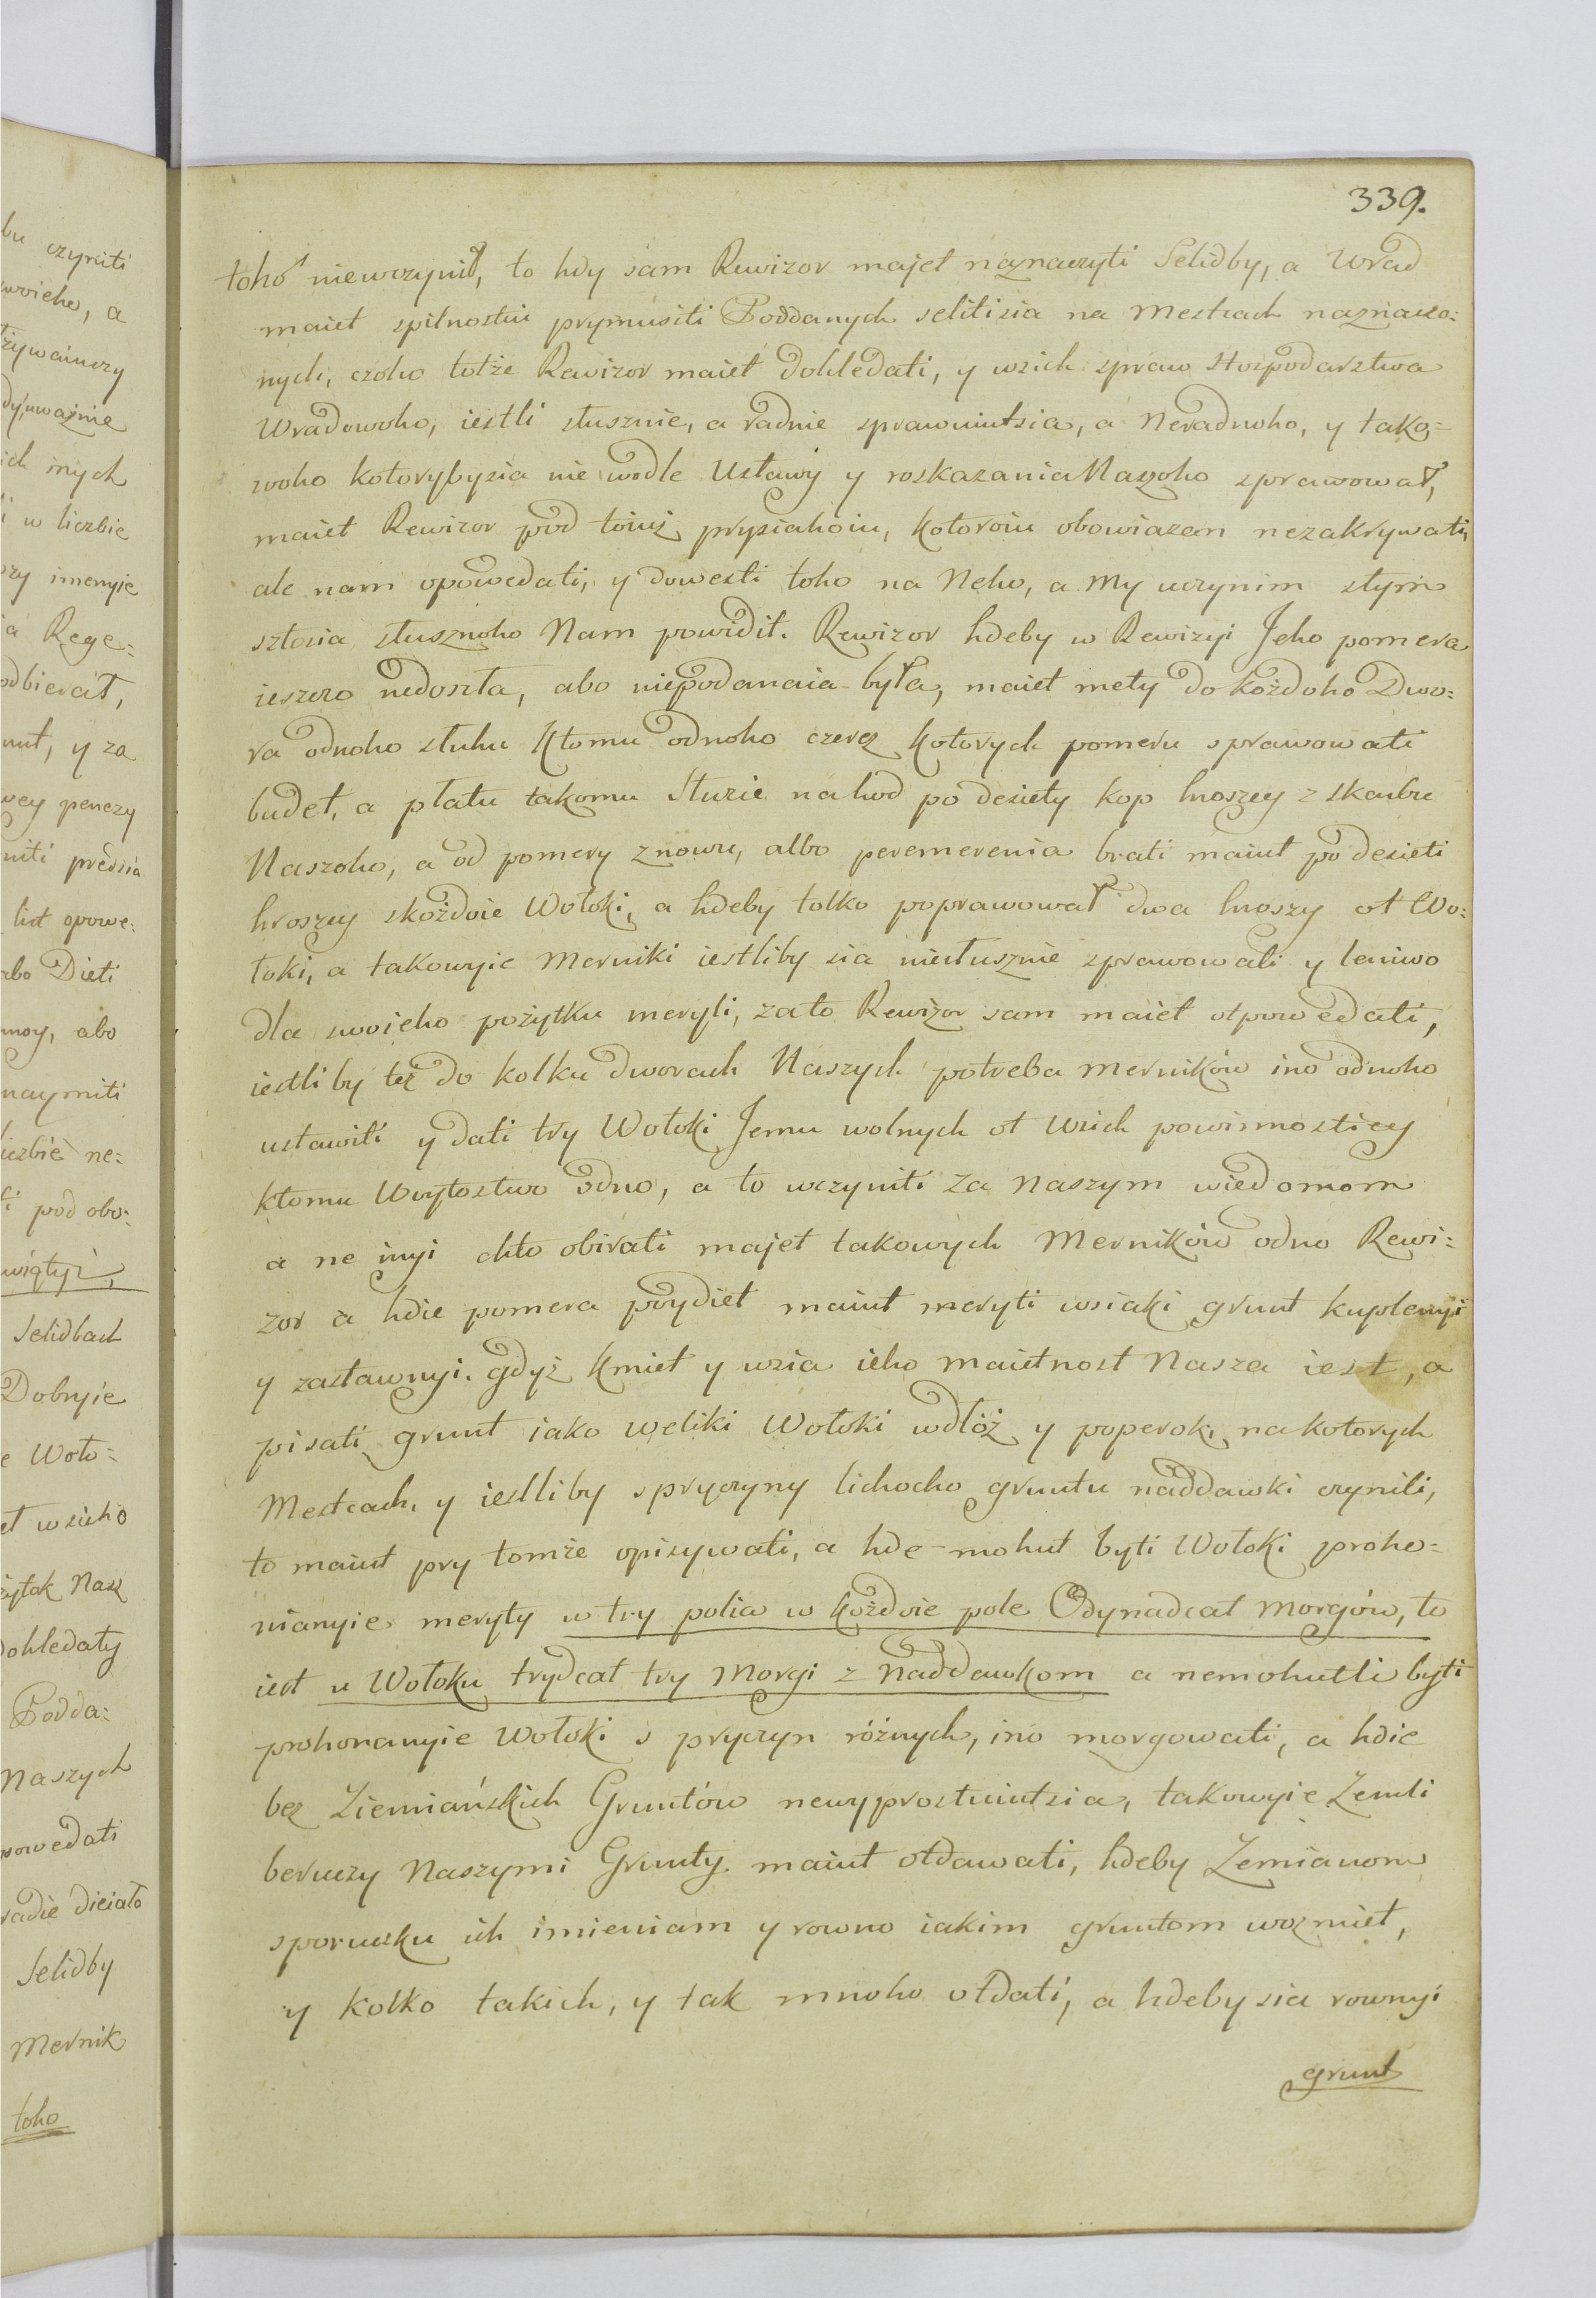 339.
toho nieuczynił, to hdy sam Rewizor majet naznaczyti Selidby, a Wrad
maiet spilnostiu prymusiti Poddanych selitisia na Mestcach naznaczo:
nych, czoho totże Rewizor maiet dohledati, y wsich spraw Hospodarstwa
Wradowoho, iestli słusznie, a radnie sprawuiutsia, a Neradnoho, y tako=
woho kotorybysia nie wodle Ustawy y roskazania Naszoho sprawował,
maiet Rewizor pod toiuż prysiahoiu, kotoroiu obowiazan nezakrywati,
ale nam opowedati, y dowesti toho na Neho, a My uczynim stym
sztosia słusznoho Nam powidit. Rewizor hdeby w Rewizyi Jeho pomera
ieszczo nedoszła, abo niepodanaia była, maiet mety do kożdoho Dwo:
ra odnoho słuhu ktomu odnoho czerez kotorych pomeru sprawowati
budet, a płatu takomu Słuzie na hod po desiety kop hroszey z skarbu
Naszoho, a od pomery znowu, albo peremerenia brati maiut po desieti
hroszey skożdoie Wołoki, a hdeby tolko poprawował dwa hroszy ot Wo:
łoki, a takowyie Merniki iestliby sia niesłusznie sprawowali y leniwo
dla swoieho pożytku meryli, zato Rewizor sam maiet otpowedati,
iestli by też do kolku dworach Naszych potreba Merników ino odnoho
ustawiti y dati try Wołoki Jemu wolnych ot wsich powinnostiey
ktomu Woytostwo odno, a to uczyniti za Naszym wiedomom
a ne inyi chto obirati majet takowych Merników odno Rewi:
zor a hdie pomera poydiet maiut meryti wsiaki grunt kuplenyi
y zastawnyi. gdyż kmiet y wsia ieho maietnost Nasza iest, a
pisati grunt iako weliki Wołoki wdłóż y poperok, na kotorych
Mestcach, y iestliby s pryczyny lichocho gruntu naddawki czynili,
to maiut pry tomże opisywati, a hde mohut byti Wołoki proho=
nianyie meryty w try polia w kożdoie pole Odynadcat Morgów, to
iest u Wołoku trydcat try Morgi z Naddawkom a nemohutli byti
prohonanyie Wołoki s pryczyn różnych, ino morgowati, a hdie
bez Ziemiańskich Gruntów newyprostuiutsia, takowyie Zemli
beruczy Naszymi Grunty maiut otdawati, hdeby Zemianom
sporuczku ich imieniam y rowno iakim gruntom wozmiet,
y kolko takich, y tak mnoho otdati, a hdeby sia rownyi
grunt
bu czyniti
swoieho, a
dyuważnie
ich inych
i w liczbie
imenyie
Rege=
odbierat,
y za
penezy
predsia
list opowe:
abo Dieti
abo
naymiti
ne=
pod obo:
Selidbach
Dobryie
Woło=
wsieho
Nasz
dohledaty
Podda:
Naszych
Selidby
Mernik
toho